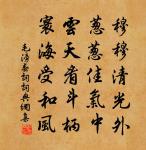 穆穆清光外
蔥蔥佳氣中
雲天看斗柄
寰海受和風
毛滂春詞詞典網集